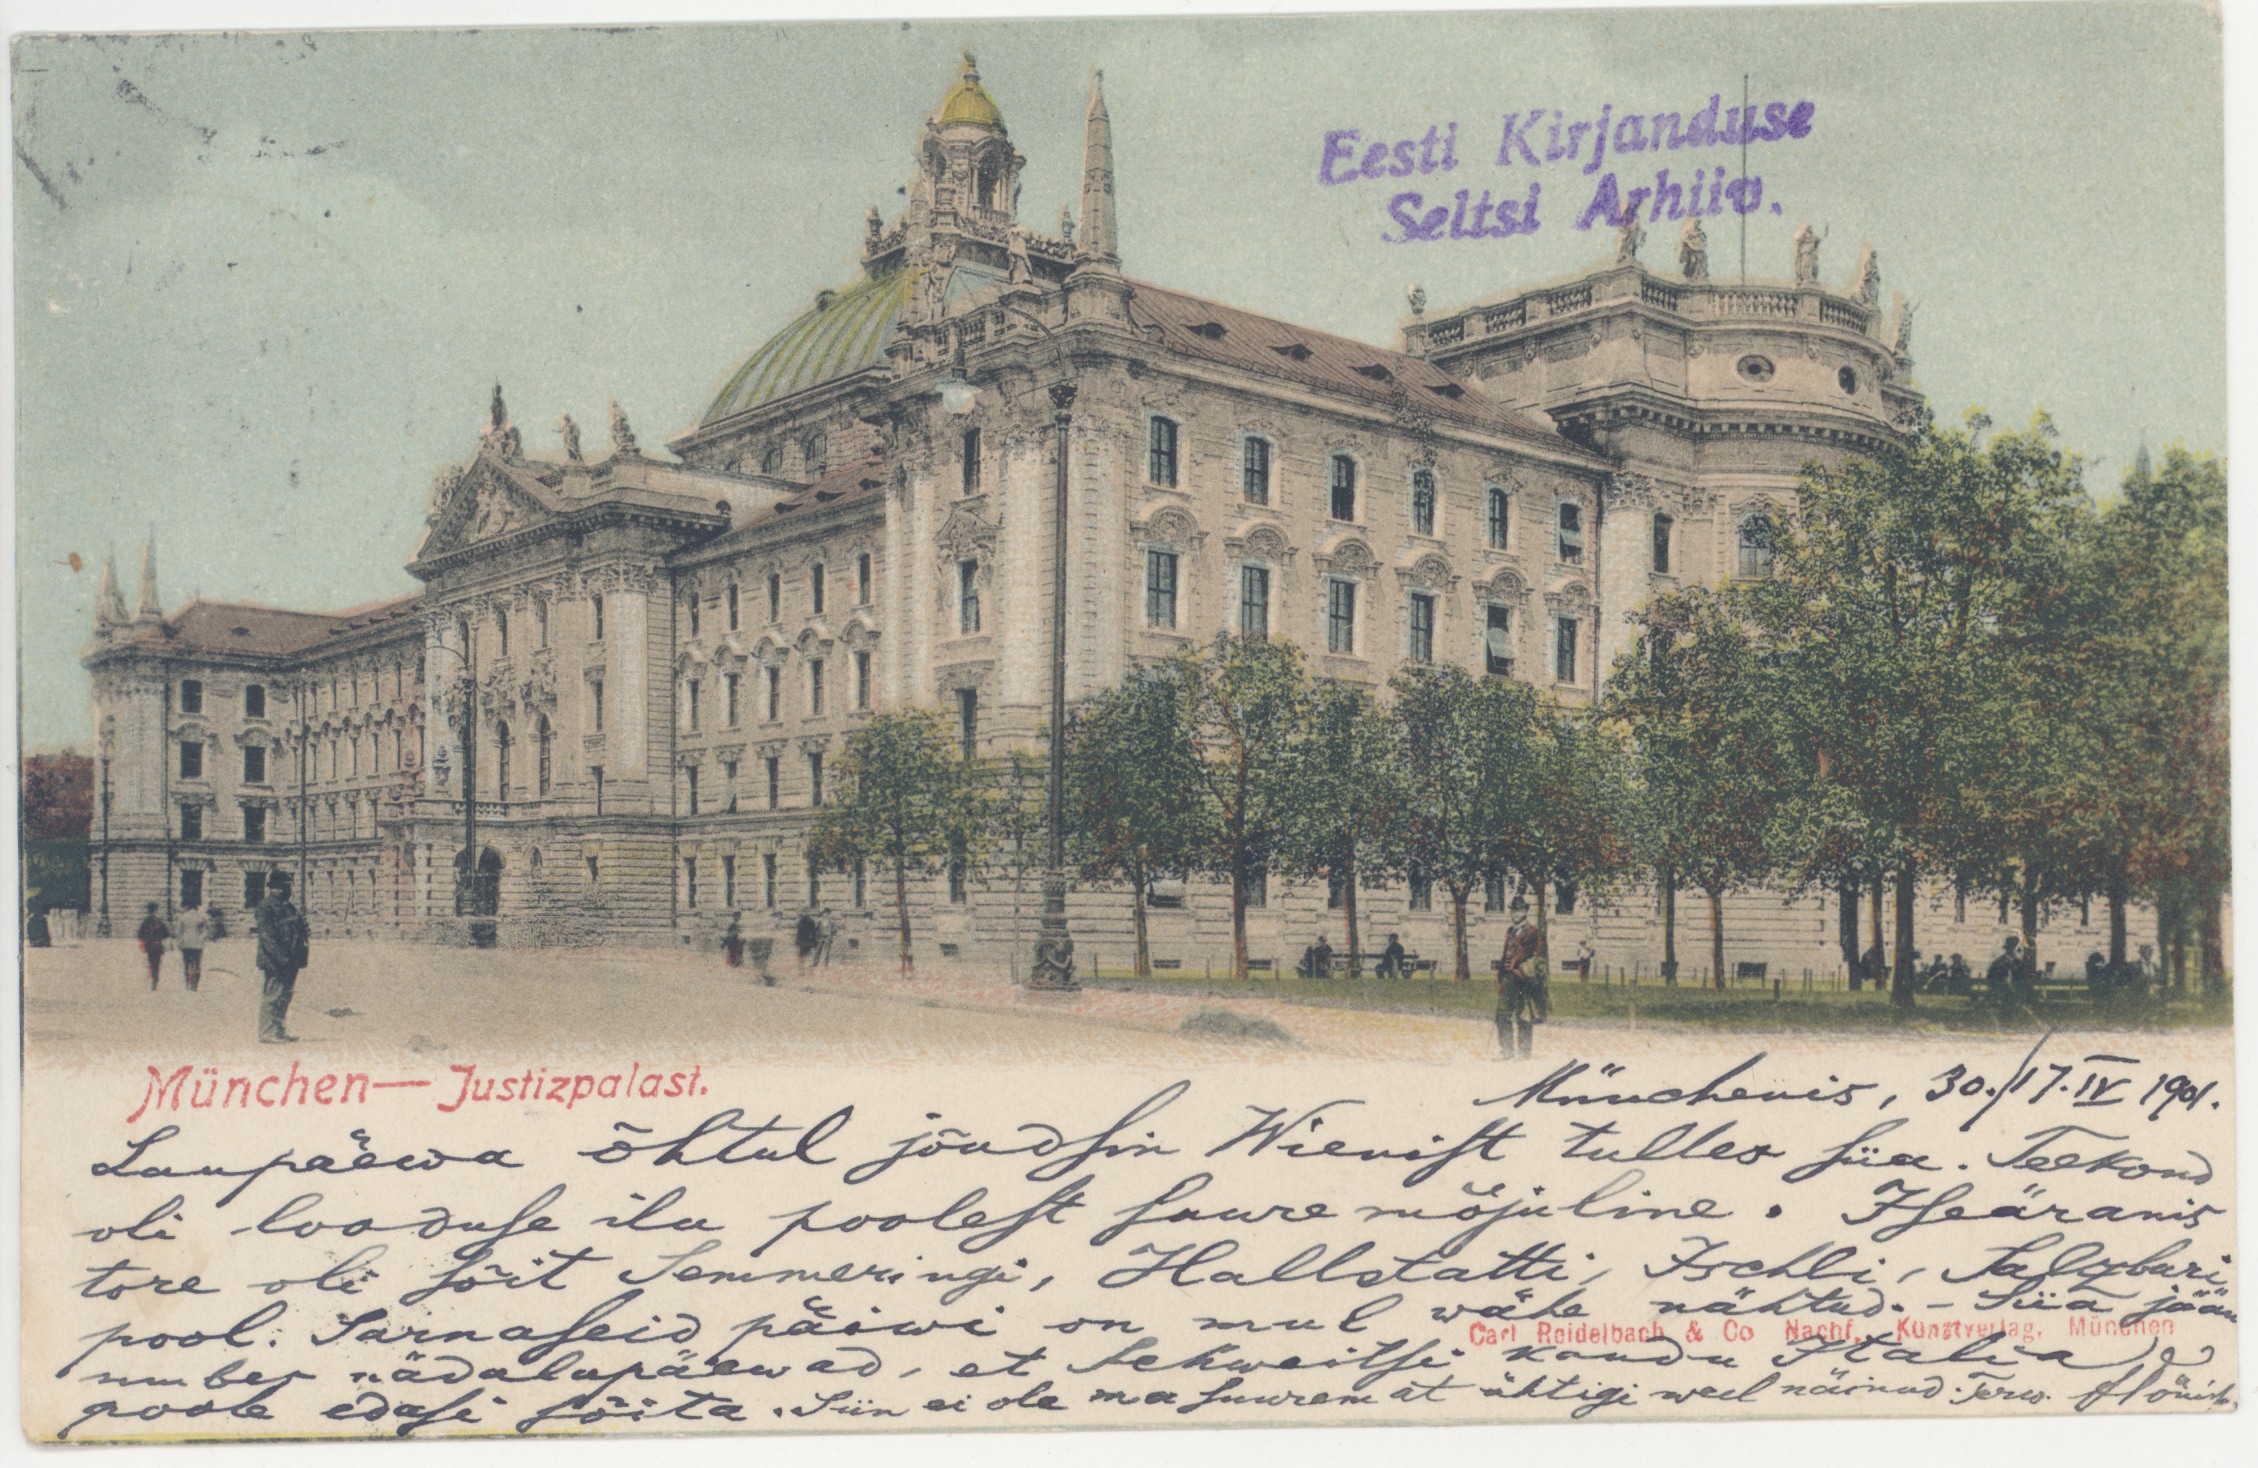 Eesti Kirjanduse
Seltsi Arhiiv.
München — Justizpalast.
Münchenis, 30./17. IV 1901.
Laupäewa õhtul jõudsin Wienist tulles siia. Teekond
oli looduse ilu poolest suure mõjuline. Iseäranis
tore oli sõit Semmeringi, Hallstatti, Ischli, Salzburi
pool. Sarnaseid päiwi on mul wähe nähtud. - Siia jään
Carl Reidelbach & Co Nachf. Kunstverlag, München
umbes nädalapäewad, et Schweitsi kaudu Italia
poole edasi sõita. Siin ei ole ma suuremat ühtigi weel näinud. Terw.